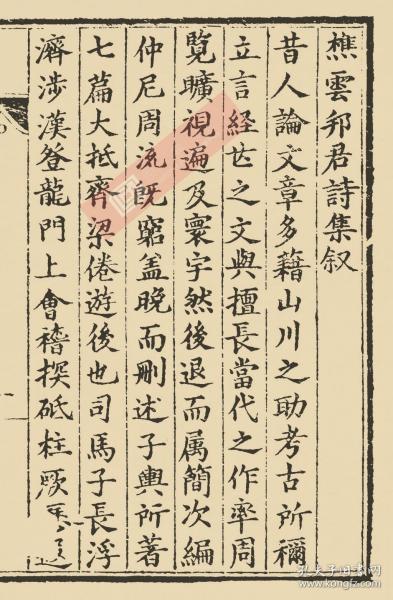 樵雲邦君詩集叙
昔人論文章多藉山川之助考古所稱
立言経世之文與擅長當代之作率周
覽曠視遍及寰宇然後退而属簡次編
仲尼周流既窮盖晚而刪述子輿所著
七篇大抵齊梁倦遊後也司馬子長浮
濟涉漢登龍門上會稽探砥柱
孔夫子旧书网
www.kongfz.com